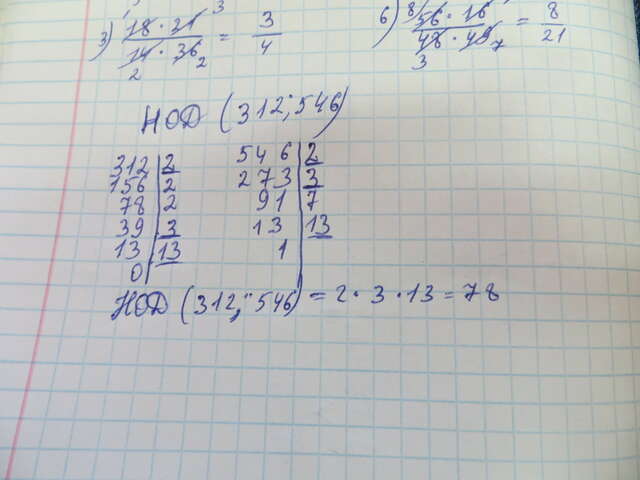 3) 18 · 21 / 14 · 36 = 3/4
1 3
2 2
б) 56 · 16 / 48 · 49 = 8/21
8
3 7
НОД (312; 546)
312 | 2
156 | 2
78 | 2
39 | 3
13 | 13
0 |
546 | 2
273 | 3
91 | 7
13 | 13
1 |
НОД (312; 546) = 2 · 3 · 13 = 78